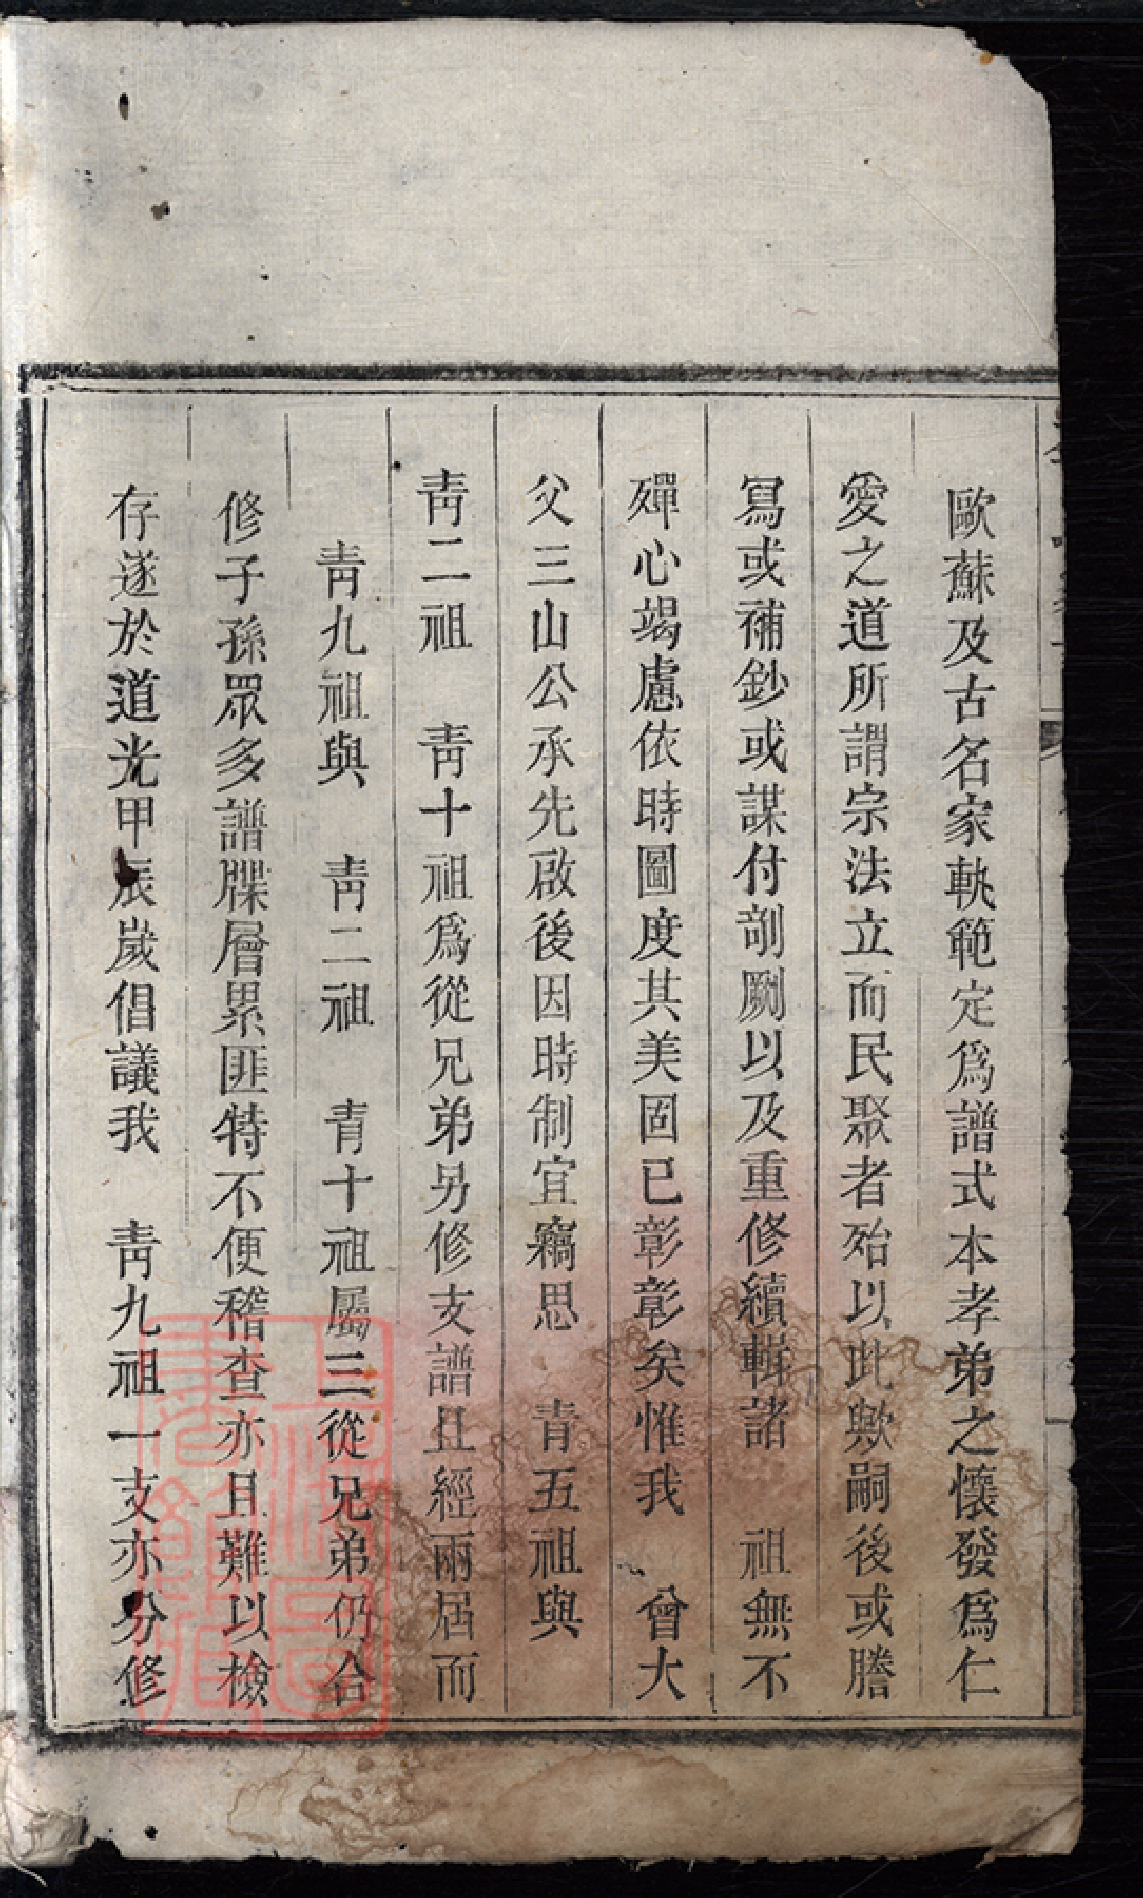 歐蘇及古名家軌範定爲譜式本孝弟之懷發爲仁
愛之道所謂宗法立而民聚者殆以此歟嗣後或謄
寫或補鈔或謀付剞劂以及重修續輯諸　祖無不
殫心竭慮依時圖度其美固已彰彰矣惟我　曾大
父三山公承先啟後因時制宜竊思　靑五祖與
靑二祖　靑十祖爲從兄弟另修支譜且經兩届而
靑九祖與　靑二祖　靑十祖屬三從兄弟仍合
修子孫眾多譜牒層累匪特不便稽查亦且難以檢
存遂於道光甲辰歲倡議我　靑九祖一支亦分修